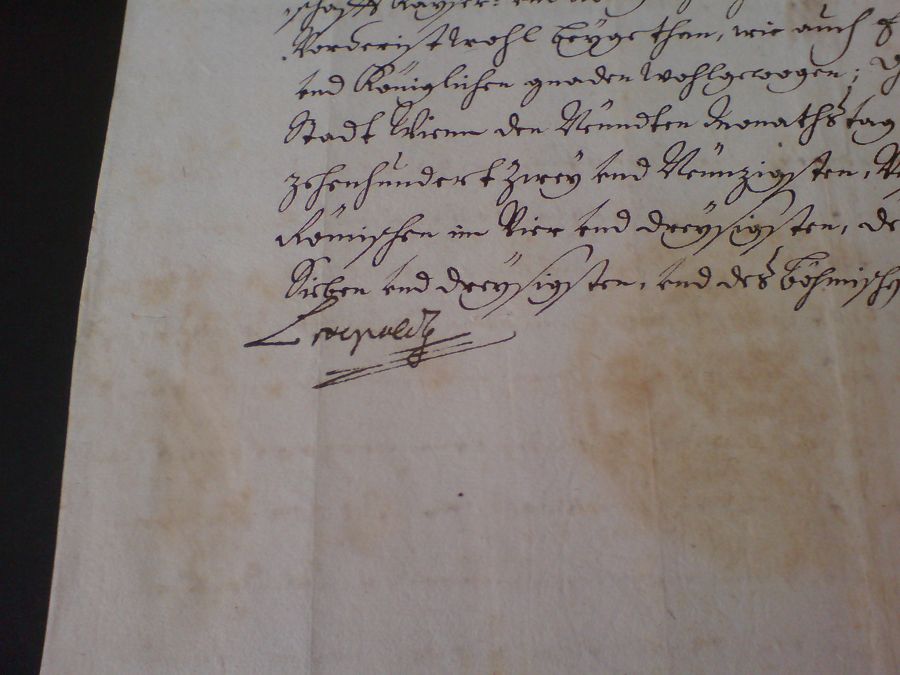 schafft Kayser:
Vorderist wohl beygethan, wie auch
vnd Königlichen gnaden wohlgewogen;
Stadt Wienn den Neündten Monathstag
zehenhundert Zweÿ vnd Neünzigsten,
Römischen im Vier vnd dreÿsigsten, de
Siben vnd dreÿsigsten, vnd des Böhmische
Leopoldt